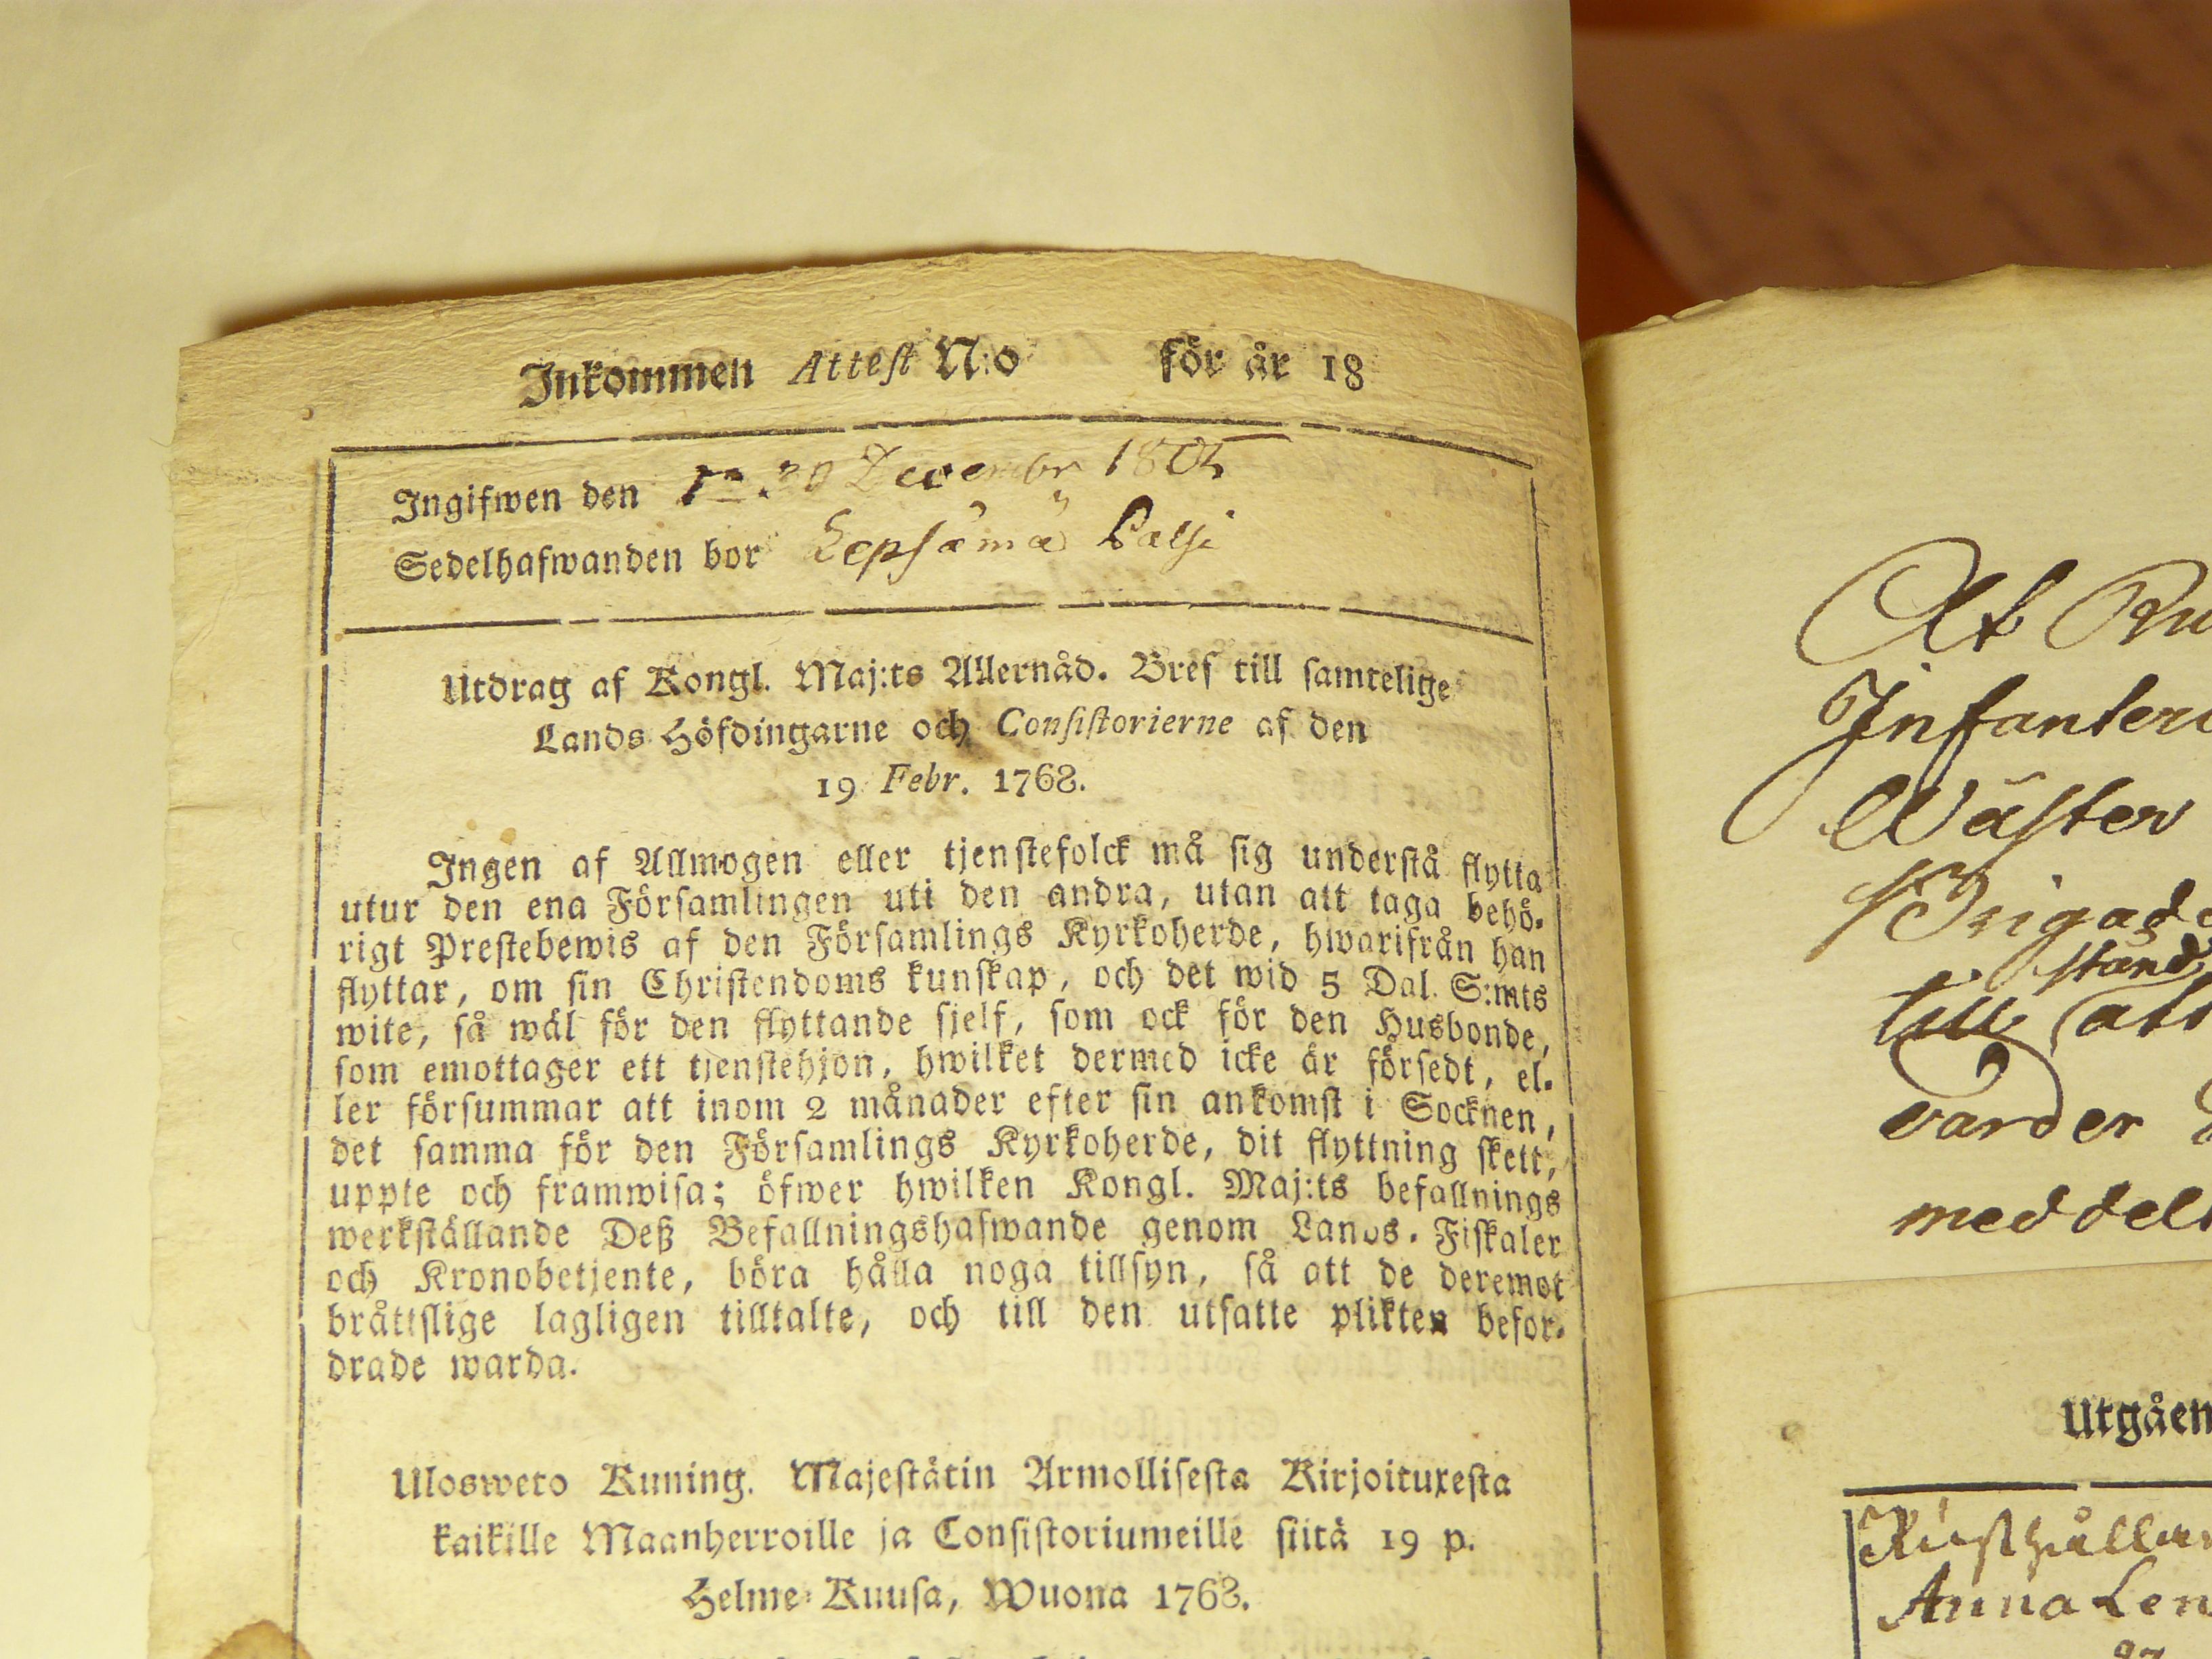 Inkommen Attest N:o för år 18
Ingifwen den 20 Decembr 1805
Sedelhafwanden bor Lepsämä
Utdrag af Kongl. Maj:ts Allernåd. Bref till samtelige
Lands Höfdingarne och Consistorierne af den
19 Febr. 1768.
Ingen af Allmogen eller tjenstefolck må sig understå flytta
utur den ena Församlingen uti den andra, utan att taga behö-
rigt Prestebewis af den Församlings Kyrkoherde, hwarifrån han
flyttar, om sin Christendoms kunskap, och det wid 5 Dal. S:mts
wite, så wäl för den flyttande sjelf, som ock för den Husbonde,
som emottager ett tjenstehjon, hwilket dermed icke är försedt, el-
ler försummar att inom 2 månader efter sin ankomst i Socknen,
det samma för den Församlings Kyrkoherde, dit flyttning skett,
uppte och framwisa; öfwer hwilken Kongl. Maj:ts befallnings
werkställande Deß Befallningshafwande genom Lands-Fiskaler
och Kronobetjente, böra hålla noga tillsyn, så att de deremot
bråttslige lagligen tilltalte, och till den utsatte plikten befor-
drade warda.
Ulosweto Kuning. Majestätin Armollisesta Kirjoituxesta
kaikille Maanherroille ja Consistoriumeille siitä 19 p.
Helme-Kuusa, Wuona 1768.
At
Infanteri
Wäster
Brigade
stånd
till att
varder
meddel
Utgåen
Rusthållar
Anna Len